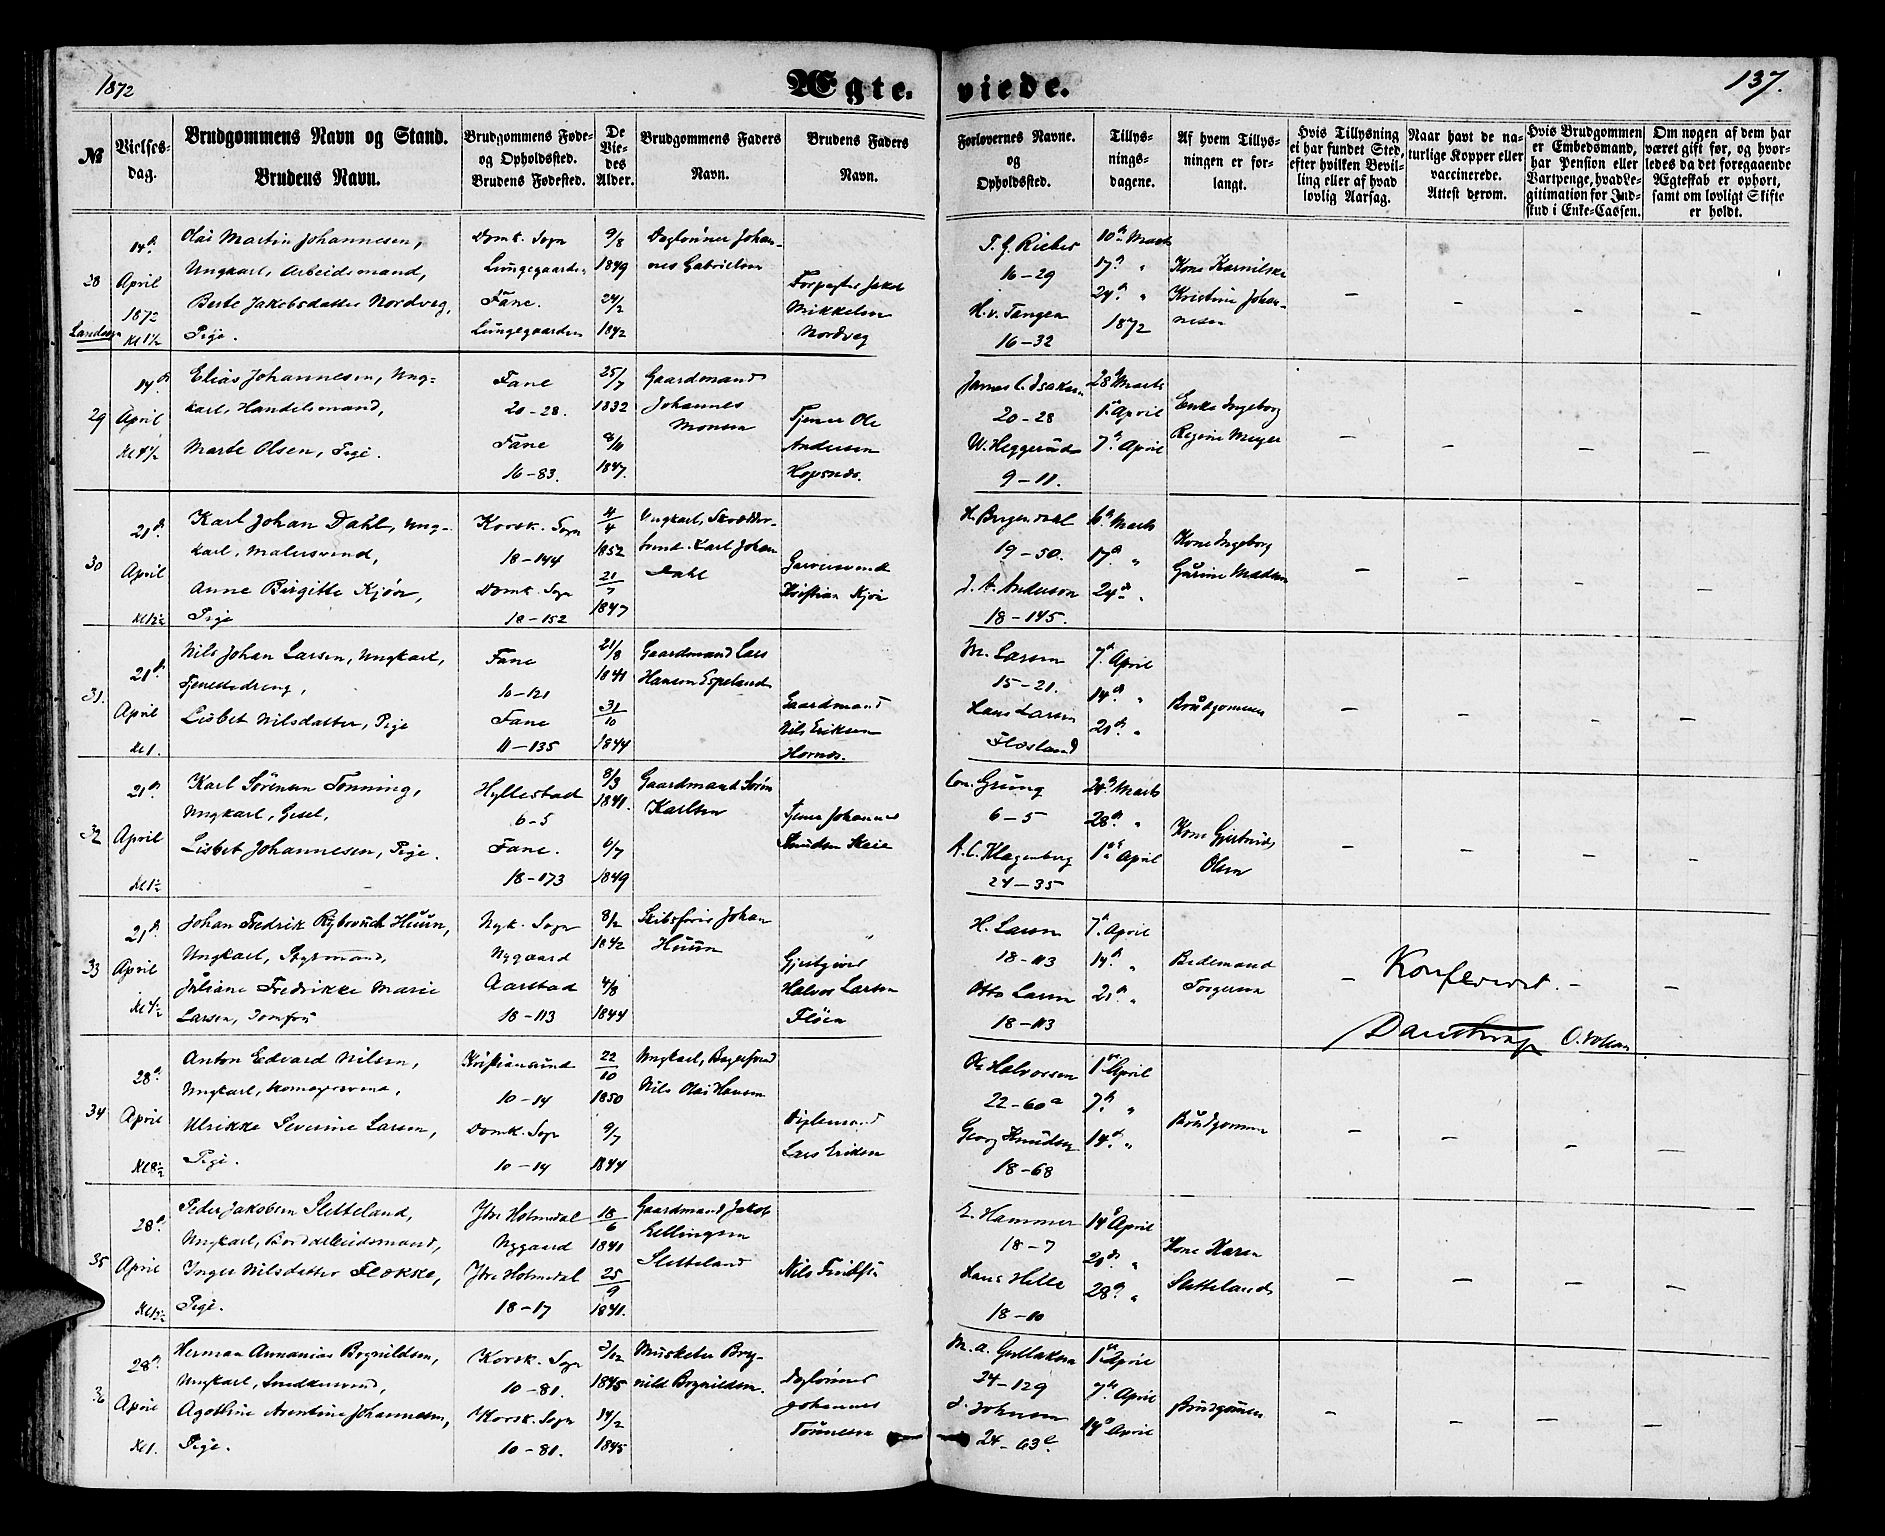 1872
Ægte-
viede.
137.
№
Vielses-
dag.
Brudgommens Navn og Stand.
Brudens Navn.
Brudgommens Føde-
og Opholdssted.
Brudens Fødested.
De
Vie-
des
Alder.
Brudgommens Faders
Navn.
Brudens Faders
Navn.
Forlovernes Navne.
og
Opholdssted.
Tillys-
nings-
dagene.
Af hvem Tillys-
ningen er for-
langt.
Hvis Tillysning
ei har fundet Sted,
efter hvilken Bevil-
ling eller af hvad
lovlig Aarsag.
Naar havt de na-
turlige Kopper eller
vaccinerede.
Attest derom.
Hvis Brudgommen
er Embedsmand,
har Pension eller
Vartpenge, hvad Le-
gitimation for Ind-
skud i Enke-Cassen.
Om nogen af dem har
været gift før, og hvor-
ledes da det foregaaende
Ægteskab er ophørt,
samt om lovligt Skifte
er holdt.
28
14de
April
1872
Kl 1½
Olai Martin Johannesen,
Ungkarl, Arbeidsmand,
Berte Jakobsdatter Nordveg,
Pige.
Domk. Sogn
Lungegaarden
Fane.
Lungegaarden
9/8
1849
24/2
1842
Daglønner Johan-
nes Gabrielsen
Forpagter Jakob
Mikkelsen
Nordveg
T. G. Rieber
16-29
H. v. Tangen
16-32
10de Marts
17de "
24de "
1872
Kone
Kristine Johan-
nesen
29
14de
April
Kl 4½
Elias Johannesen, Ung-
karl, Handelsmand,
Marte Olsen, Pige.
Fane
20-28.
Fane
16-83.
25/7
1832
8/11
1847.
Gaardmand
Johannes
Monsen
Tjener Ole
Andersen
Hopsnes.
James C. Isaksen
20-28
W. Heggerud
9-11.
28de Marts
1ste April
7de April
Enke Ingeborg
Regine Meyer
30
21de
April
Kl 12½
Karl Johan Dahl, Ung-
karl, Malersvend,
Anne Birgitte Kjøer,
Pige
Korsk. Sogn
18-144
Domk. Sogn
18-152
4/4
1852
21/7
1847
Ungkarl, Skrædder-
svend Karl Johan
Dahl
Garversvend
Kristian Kjøer
H. Bergendahl
19-50.
J. A. Anderson
18-145.
10de Marts
17de "
24de "
Kone Ingeborg
Gurine Madsen
31.
21de
April
Kl 1.
Nils Johan Larsen, Ungkarl,
Tjenestedreng,
Lisbet Nilsdatter, Pige
Fane
10-121
Fane
11-135
21/8
1841
31/10
1844
Gaardmand Lars
Hansen Espeland
Gaardmand
Nils Eriksen
Hornes.
M. Larsen
15-21.
Hans Larsen
Flesland
7de April
14de "
21de "
Brudgommen
32
21de
April
Kl 1½
Karl Sørensen Tonning,
Ungkarl, Gesel,
Lisbet Johannesen, Pige.
Hyllestad
6-5
Fane.
18-173
8/3
1841.
6/7
1849
Gaardmand Søren
Karlsen
Tjener Johannes
Knudsen Skeie
Con. Grung
6-5
A. C. Klagenberg
24-35
24de Marts
28de "
1ste April
Kone Gjertrud
Olsen
33
21de
April
Kl 4½
Johan Fredrik Rybrouck Huun,
Ungkarl, Styrmand,
Juliane Fredrikke Marie
Larsen, Jomfru
Nyk. Sogn
Nygaard
Aarstad
18-113
8/2
1842
4/8
1844
Skibsfører Johan
Huun
Gjestgiver
Halvor Larsen
Fløen
H. Larsen
18-113
Otto Larsen
18-113
7de April
14de "
21de "
Bedemand
Torgersen
Konfereret.
Daustrup
34
28de
April
Kl 8½
Anton Edvard Nilsen,
Ungkarl, Skomagersvend,
Ulrikke Severine Larsen,
Pige.
Kristiansund
10-14
Domk. Sogn
10-14
22/10
1850
9/7
1844
Ungkarl, Bagersvend
Nils Olai Hansen
Lars Eriksen
Ole Halvorsen
22-60a
Georg Knudsen
18-68
1ste April
7de "
14de "
Brudgommen
35
28de
April
Kl 12½
Peder Jakobsen Sletteland,
Ungkarl, Bordarbeidsmand,
Inger Nilsdatter Flokke,
Pige.
Ytre Holmedal
Nygaard
Ytre Holmedal
18-17
18/6
1841
25/9
1841.
Gaardmand Jakob
Ellingsen
Sletteland
Nils
E. Hammer
18-7
Hans Hille
18-10
14de April
21de "
28de "
Kone Karen
Sletteland
36
28de
April
Kl 1.
Herman Annanias Bognildsen,
Ungkarl, Snedkersvend,
Agotline Arentine Johannesen,
Pige.
Korsk. Sogn
10-81.
Korsk. Sogn
10-81.
3/12
1845
14/2
1845
Musketer Bog-
nild Bognildsen.
Daglønner
Johannes
Tønnesen
M. A. Gullaksen
24-129
J. Johnsen
24-63c.
1ste April
7de April
14de April
Brudgommen